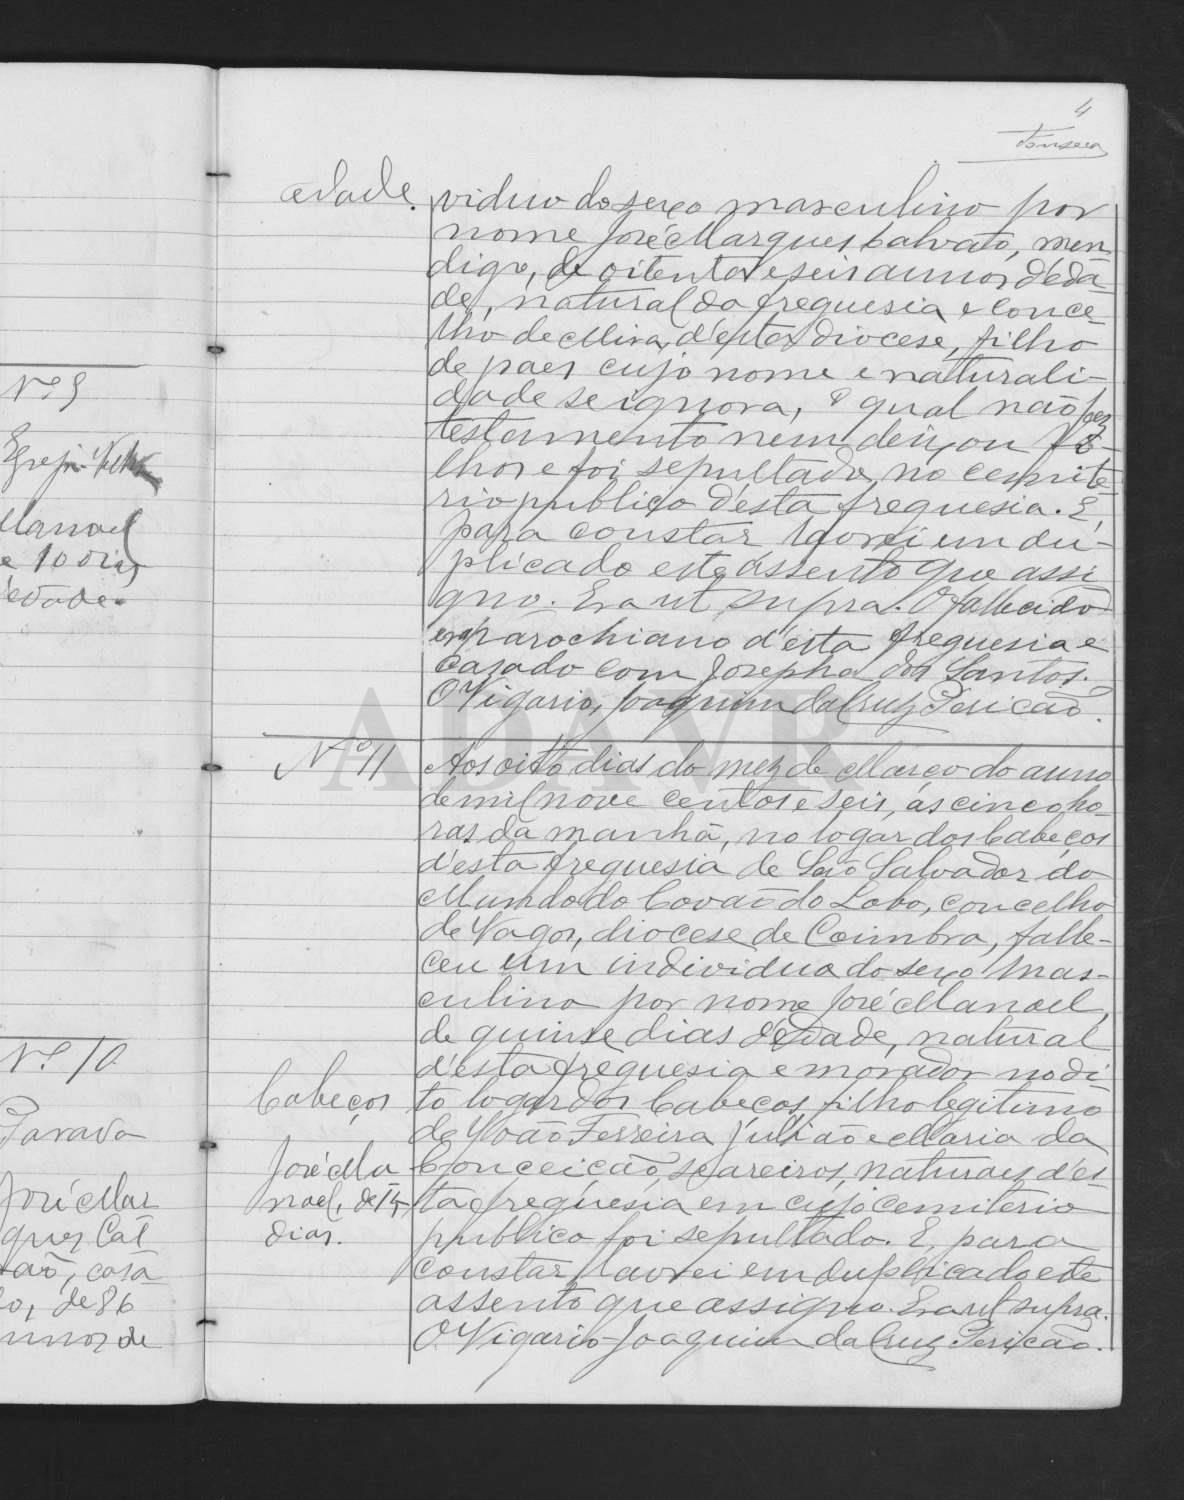 4
Fonseca
edade.
viduo do sexo masculino por
nome José Marques Calvaõ, men
digo, de oitenta e seis annos d'eda
de, natural da freguesia e conce-
lho de Mira, d'esta diocese, filho
de paes cujo nome e naturali-
dade se ignora, o qual não fez
testamento nem deixou fi-
lhos e foi sepultado no cemite
rio publico d'esta freguesia. E,
para constar lavrei em du-
plicado este assento que assi
gno. Era ut supra. O fallecido
era parochiano d'esta freguesia e
casado com Josepha dos Santos.
O Vigario, Joaquim da Cruz Pericaõ.
Nº 11
Aos oito dias do mez de Março do anno
de mil nove centos e seis, ás cinco ho-
ras da manhã, no logar dos Cabeços
d'esta freguesia de São Salvador do
Mundo do Covaõ do Lobo, concelho
de Vagos, diocese de Coimbra, falle-
ceu um individuo do sexo mas-
culino por nome José Manoel,
de quinse dias d'edade, natural
d'esta freguesia e morador no di
to logar dos Cabeços, filho legitimo
de João Ferreira Julião e Maria da
Conceição, seareiros, naturaes d'es-
ta freguesia em cujo cemiterio
publico foi sepultado. E, para
constar, lavrei em duplicado este
assento que assigno. Era ut supra.
O Vigario Joaquim da Cruz Pericaõ.
Cabeços
José Ma
noel, de 15
dias.
Nº 9
Manoel
e 10 dias
d'edade.
Nº 10
Parada
José Mar
ques Cal
vaõ, casa
do, de 86
annos de
ADAVR